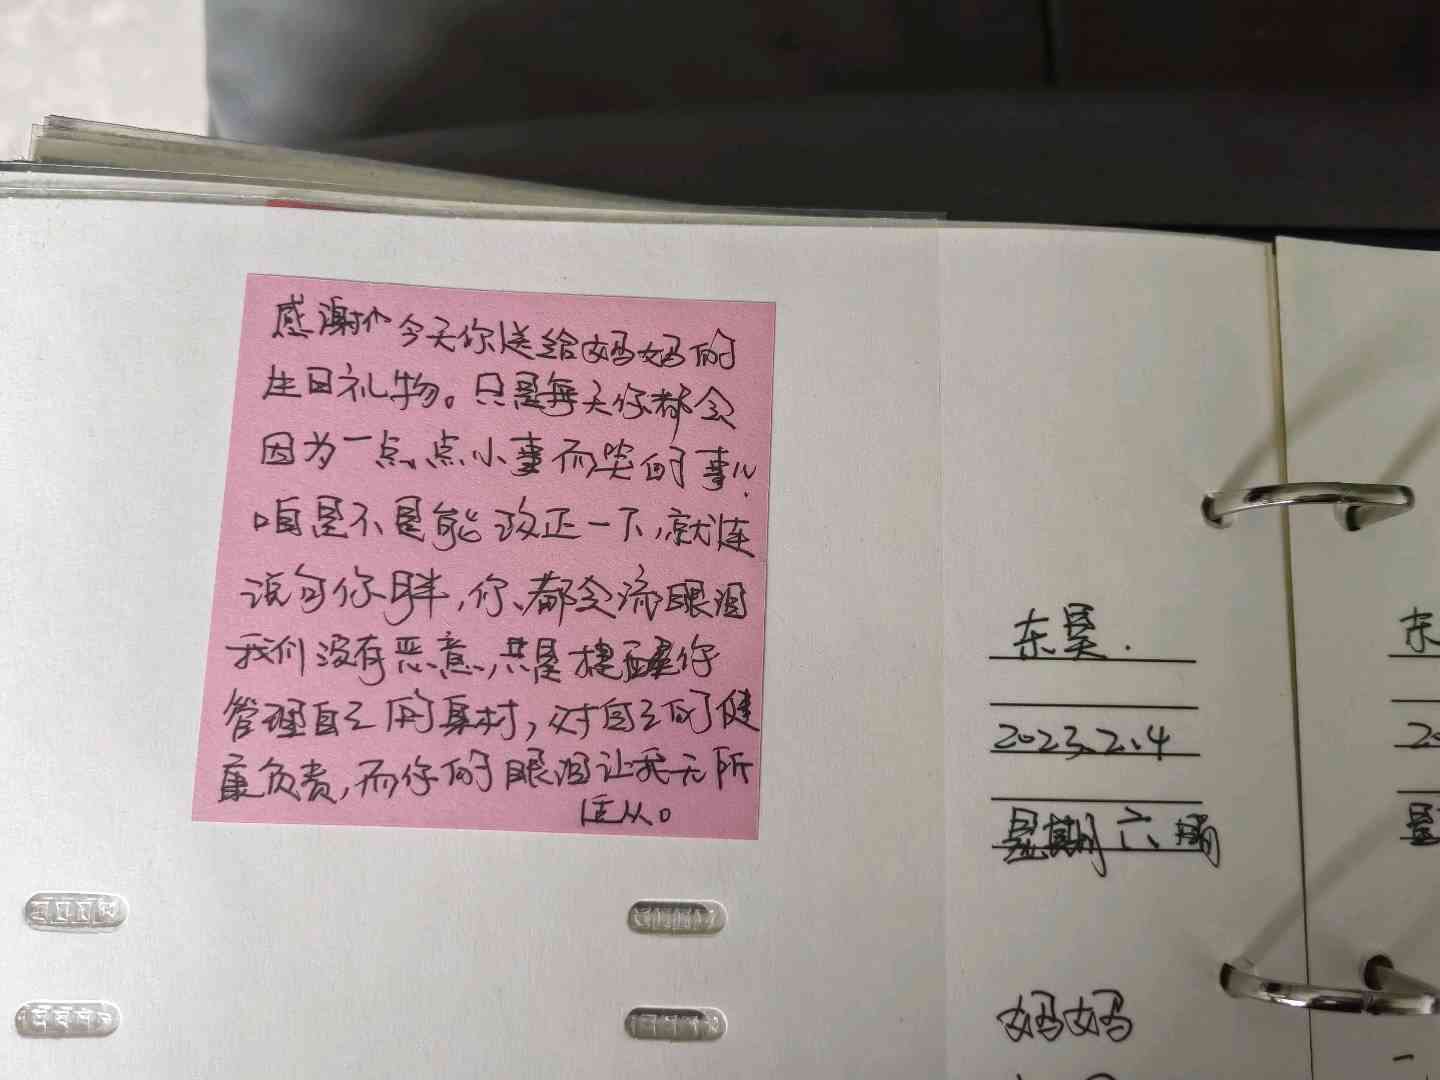 感谢你今天你送给妈妈的
生日礼物。只是每天你都会
因为一点点小事而哭的事儿,
咱是不是能改正一下,就连
说句你胖,你、都会流眼泪
我们没有恶意,只是提醒你
管理自己的身材,对自己的健
康负责,而你的眼泪让我无所
适从。
东昊.
2023.2.4
星期六晴
妈妈
东
20
星